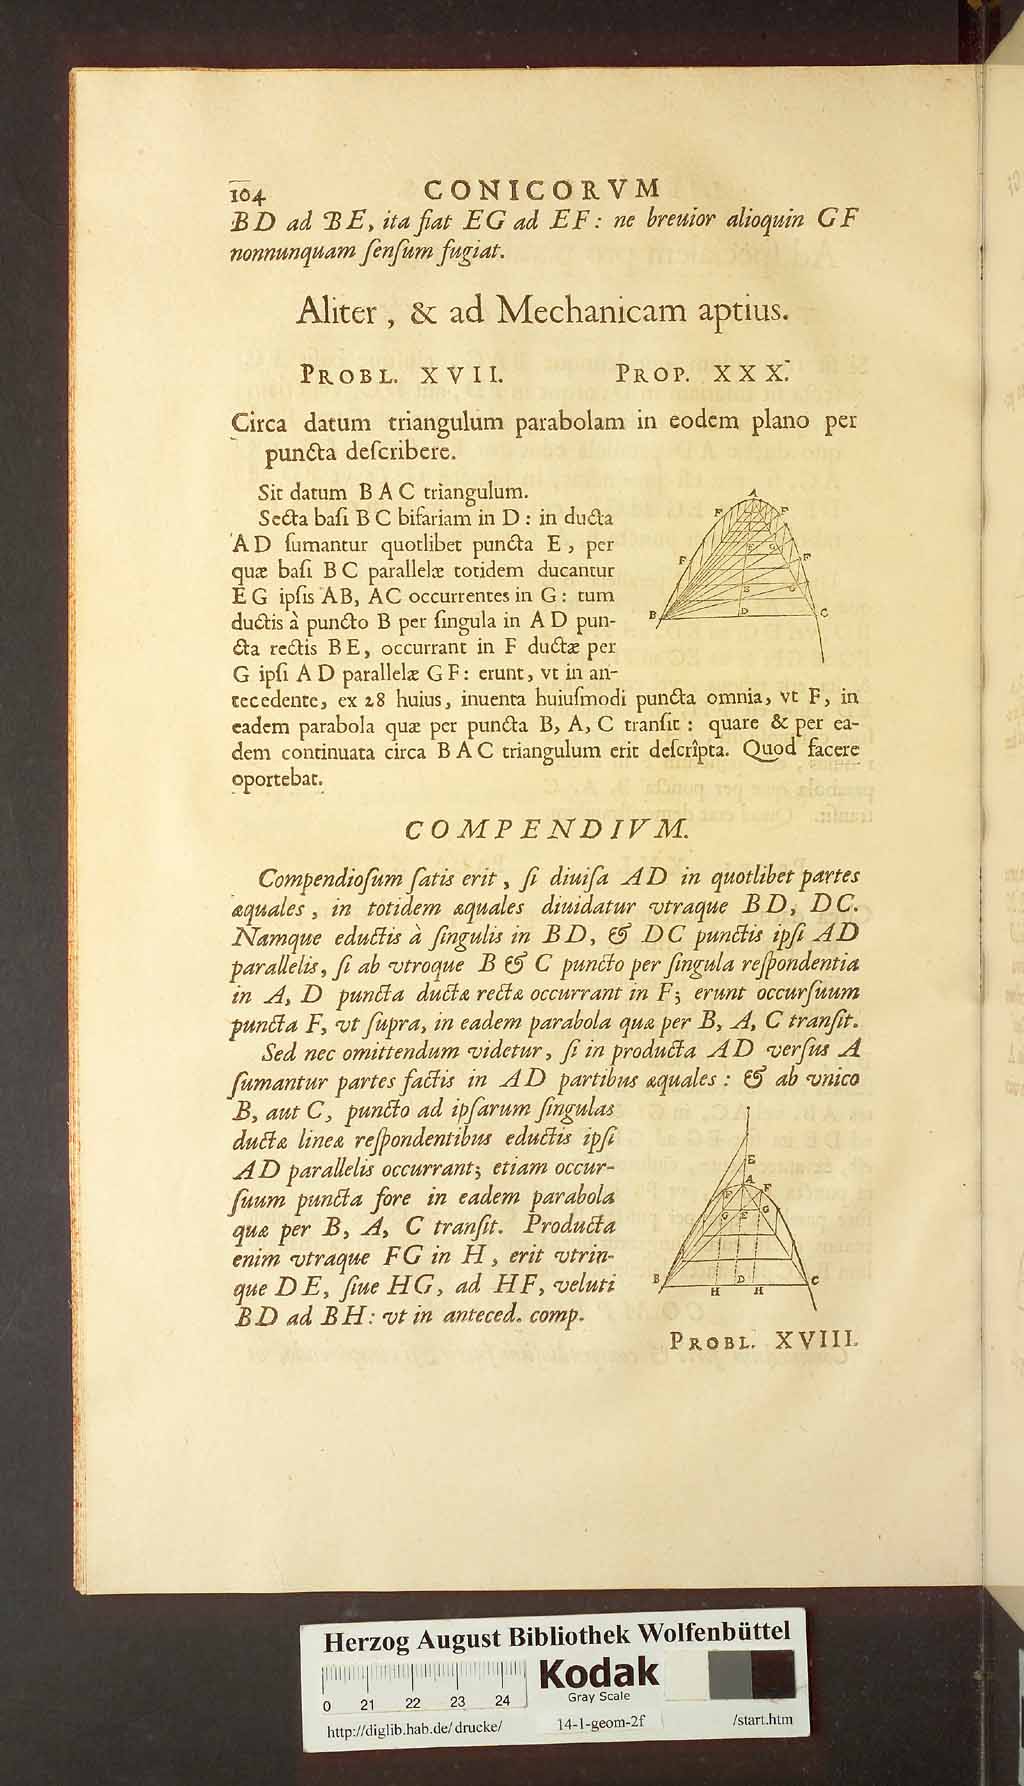 104 CONICORVM
BD ad BE, ita fiat EG ad EF: ne breuior alioquin GF
nonnunquam ſenſum fugiat.
Aliter, & ad Mechanicam aptius.
PROBL. XVII. PROP. XXX.
Circa datum triangulum parabolam in eodem plano per
puncta deſcribere.
Sit datum BAC triangulum.
Secta baſi BC bifariam in D: in ducta
AD ſumantur quotlibet puncta E, per
quæ baſi BC parallelæ totidem ducantur
EG ipſis AB, AC occurrentes in G: tum
ductis à puncto B per ſingula in AD pun-
cta rectis BE, occurrant in F ductæ per
G ipſi AD parallelæ GF: erunt, vt in an-
tecedente, ex 28 huius, inuenta huiuſmodi puncta omnia, vt F, in
eadem parabola quæ per puncta B, A, C tranſit: quare & per ea-
dem continuata circa BAC triangulum erit deſcrîpta. Quod facere
oportebat.
A
F F
F F
E G
E G
B D C
COMPENDIVM.
Compendioſum ſatis erit, ſi diuiſa AD in quotlibet partes
æquales, in totidem æquales diuidatur vtraque BD, DC.
Namque eductis à ſingulis in BD, & DC punctis ipſi AD
parallelis, ſi ab vtroque B & C puncto per ſingula reſpondentia
in A, D puncta ductæ rectæ occurrant in F; erunt occurſuum
puncta F, vt ſupra, in eadem parabola quæ per B, A, C tranſit.
Sed nec omittendum videtur, ſi in producta AD verſus A
ſumantur partes factis in AD partibus æquales: & ab vnico
B, aut C, puncto ad ipſarum ſingulas
ductæ lineæ reſpondentibus eductis ipſi
AD parallelis occurrant; etiam occur-
ſuum puncta fore in eadem parabola
quæ per B, A, C tranſit. Producta
enim vtraque FG in H, erit vtrin-
que DE, ſiue HG, ad HF, veluti
BD ad BH: vt in anteced. comp.
E
A
F F
G E G
B D C
H H
PROBL. XVIII.
Herzog August Bibliothek Wolfenbüttel
Kodak
Gray Scale
0 21 22 23 24
http://diglib.hab.de/drucke/ 14-1-geom-2f /start.htm